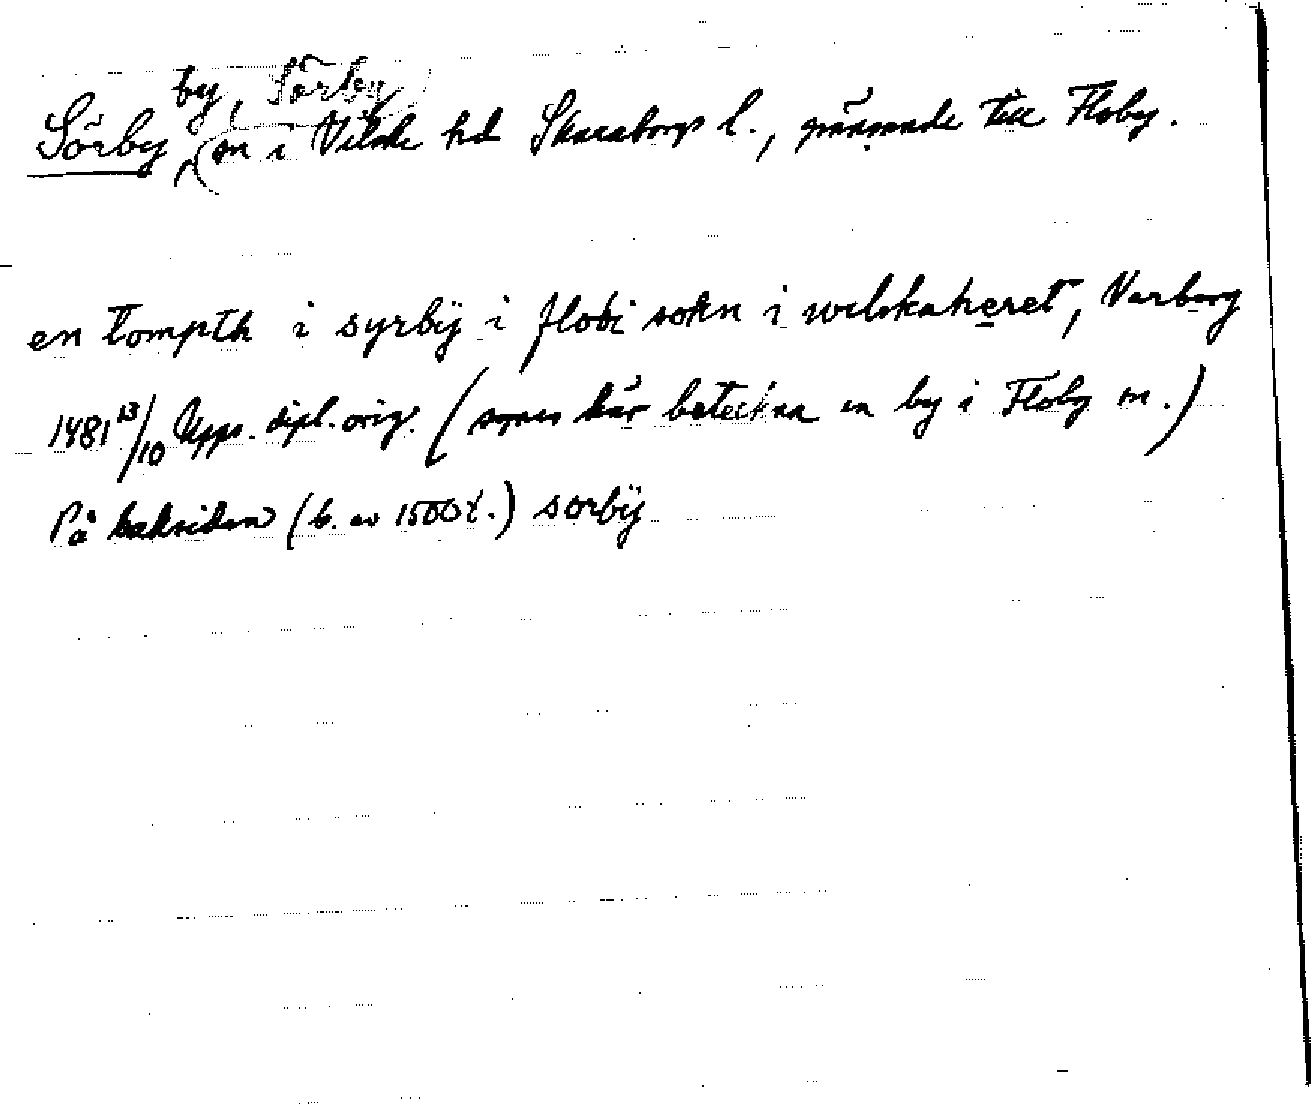 by, Sörby
Sörby (sn i Vilske hd Skaraborgs l., gränsande till Floby.
en tompth i syrbÿ i flobi sokn i wilskaheret, Varberg
1481 13/10 Upps. dipl. orig. (synes här beteckna en by i Floby sn.)
På baksidan (b. av 1500t.) sorbÿ